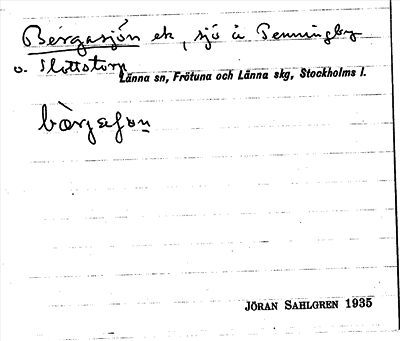 Bergasjön ek, sjö å Penningby
o. Slottstorp
Länna sn, Frötuna och Länna skg, Stockholms l.
bàrgaſøn
JÖRAN SAHLGREN 1935